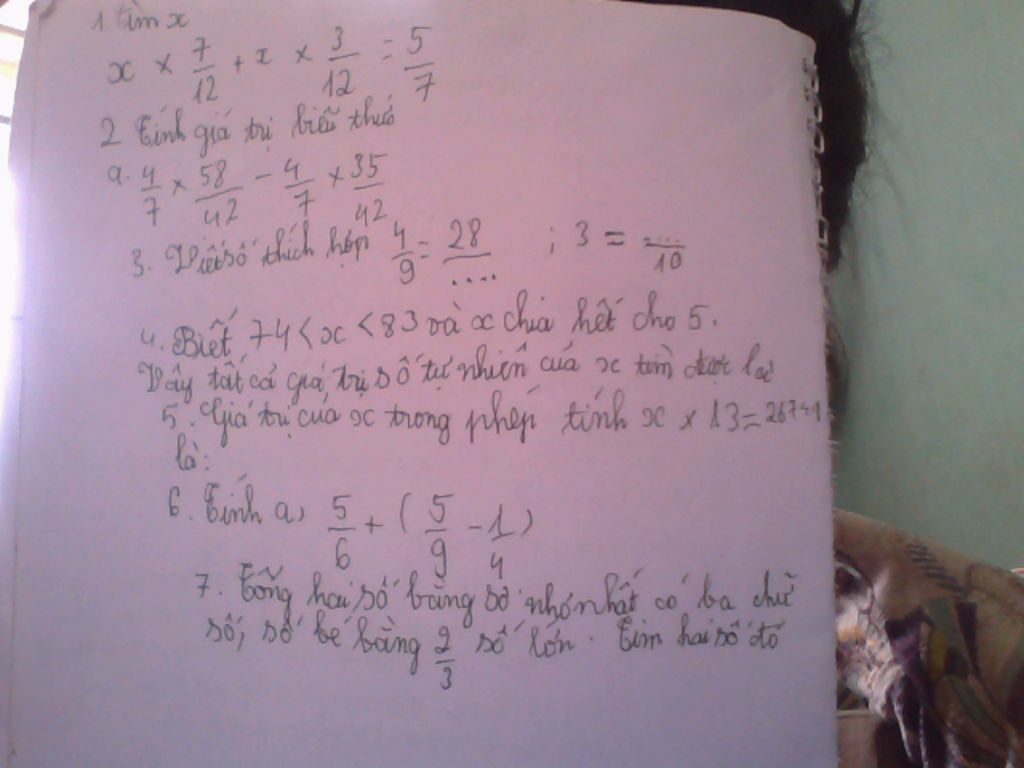 1 tìm x
x × 7/12 + x × 3/12 = 5/7
2 Tính giá trị biểu thức
a. 4/7 × 58/42 - 4/7 × 35/42
3. Viết số thích hợp 4/9 = 28/.... ; 3 = .../10
4. Biết 74 < x < 83 và x chia hết cho 5.
Vậy tất cả giá trị số tự nhiên của x tìm được là
5. Giá trị của x trong phép tính x × 13 =
là:
6. Tính a) 5/6 + ( 5/9 - 1/4 )
7. Tổng hai số bằng số nhỏ nhất có ba chữ
số, số bé bằng 2/3 số lớn. Tìm hai số đó